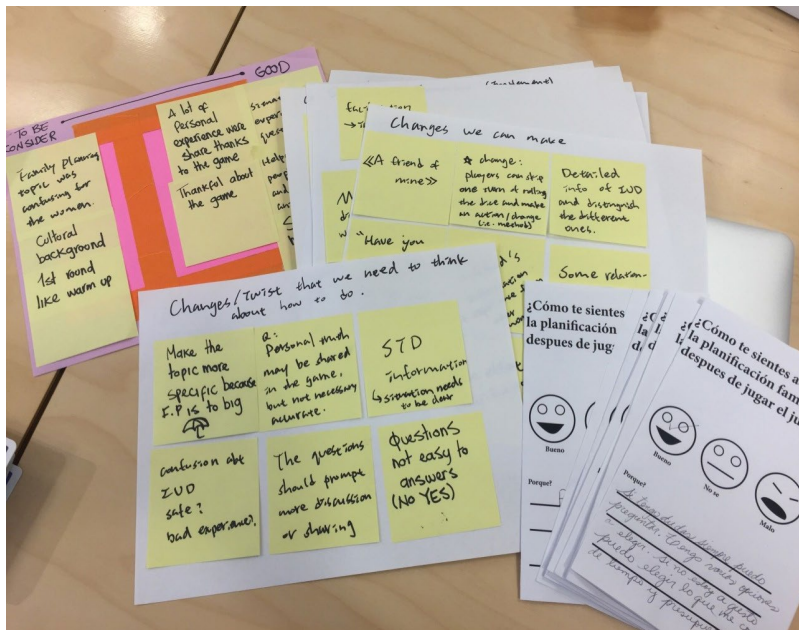 TO BE
CONSIDER
GOOD
Family Planning
topic was
confusing for
the women.
Cultural
background
1st round
like warm up
A lot of
Personal
experience were
share thanks
to the game
Thankful about
the game
Changes we can make
≪A friend of
mine≫
☆ change:
players can skip
one turn of rolling
the dice and make
an action/change
(i.e. method)
Detailed
info of IUD
and distingish
the different
ones.
"Have you
Some relation-
Changes/Twist that we need to think
about how to do.
Make the
topic more
specific because
F.P is to big
Q:
Personal truth
may be shared
in the game,
but not necessary
accurate.
STD
information
↳ situation needs
to be clear
confusion abt
IUD
safe?
bad experience?
The questions
should prompt
more discussion
or sharing
Questions
not easy to
answers
(NO YES)
¿Cómo te sientes
la planificación
despues de jug
Bueno
Porque?
¿Cómo te sientes a
la planificación fam
despues de jugar el ju
Bueno
No se
Malo
Porque?
Si tengo dudas siempre puedo
preguntar. Tengo varias opciones
a elegir. Si no estoy a gusto
puedo elegir lo que me co
de tiempo y presupue